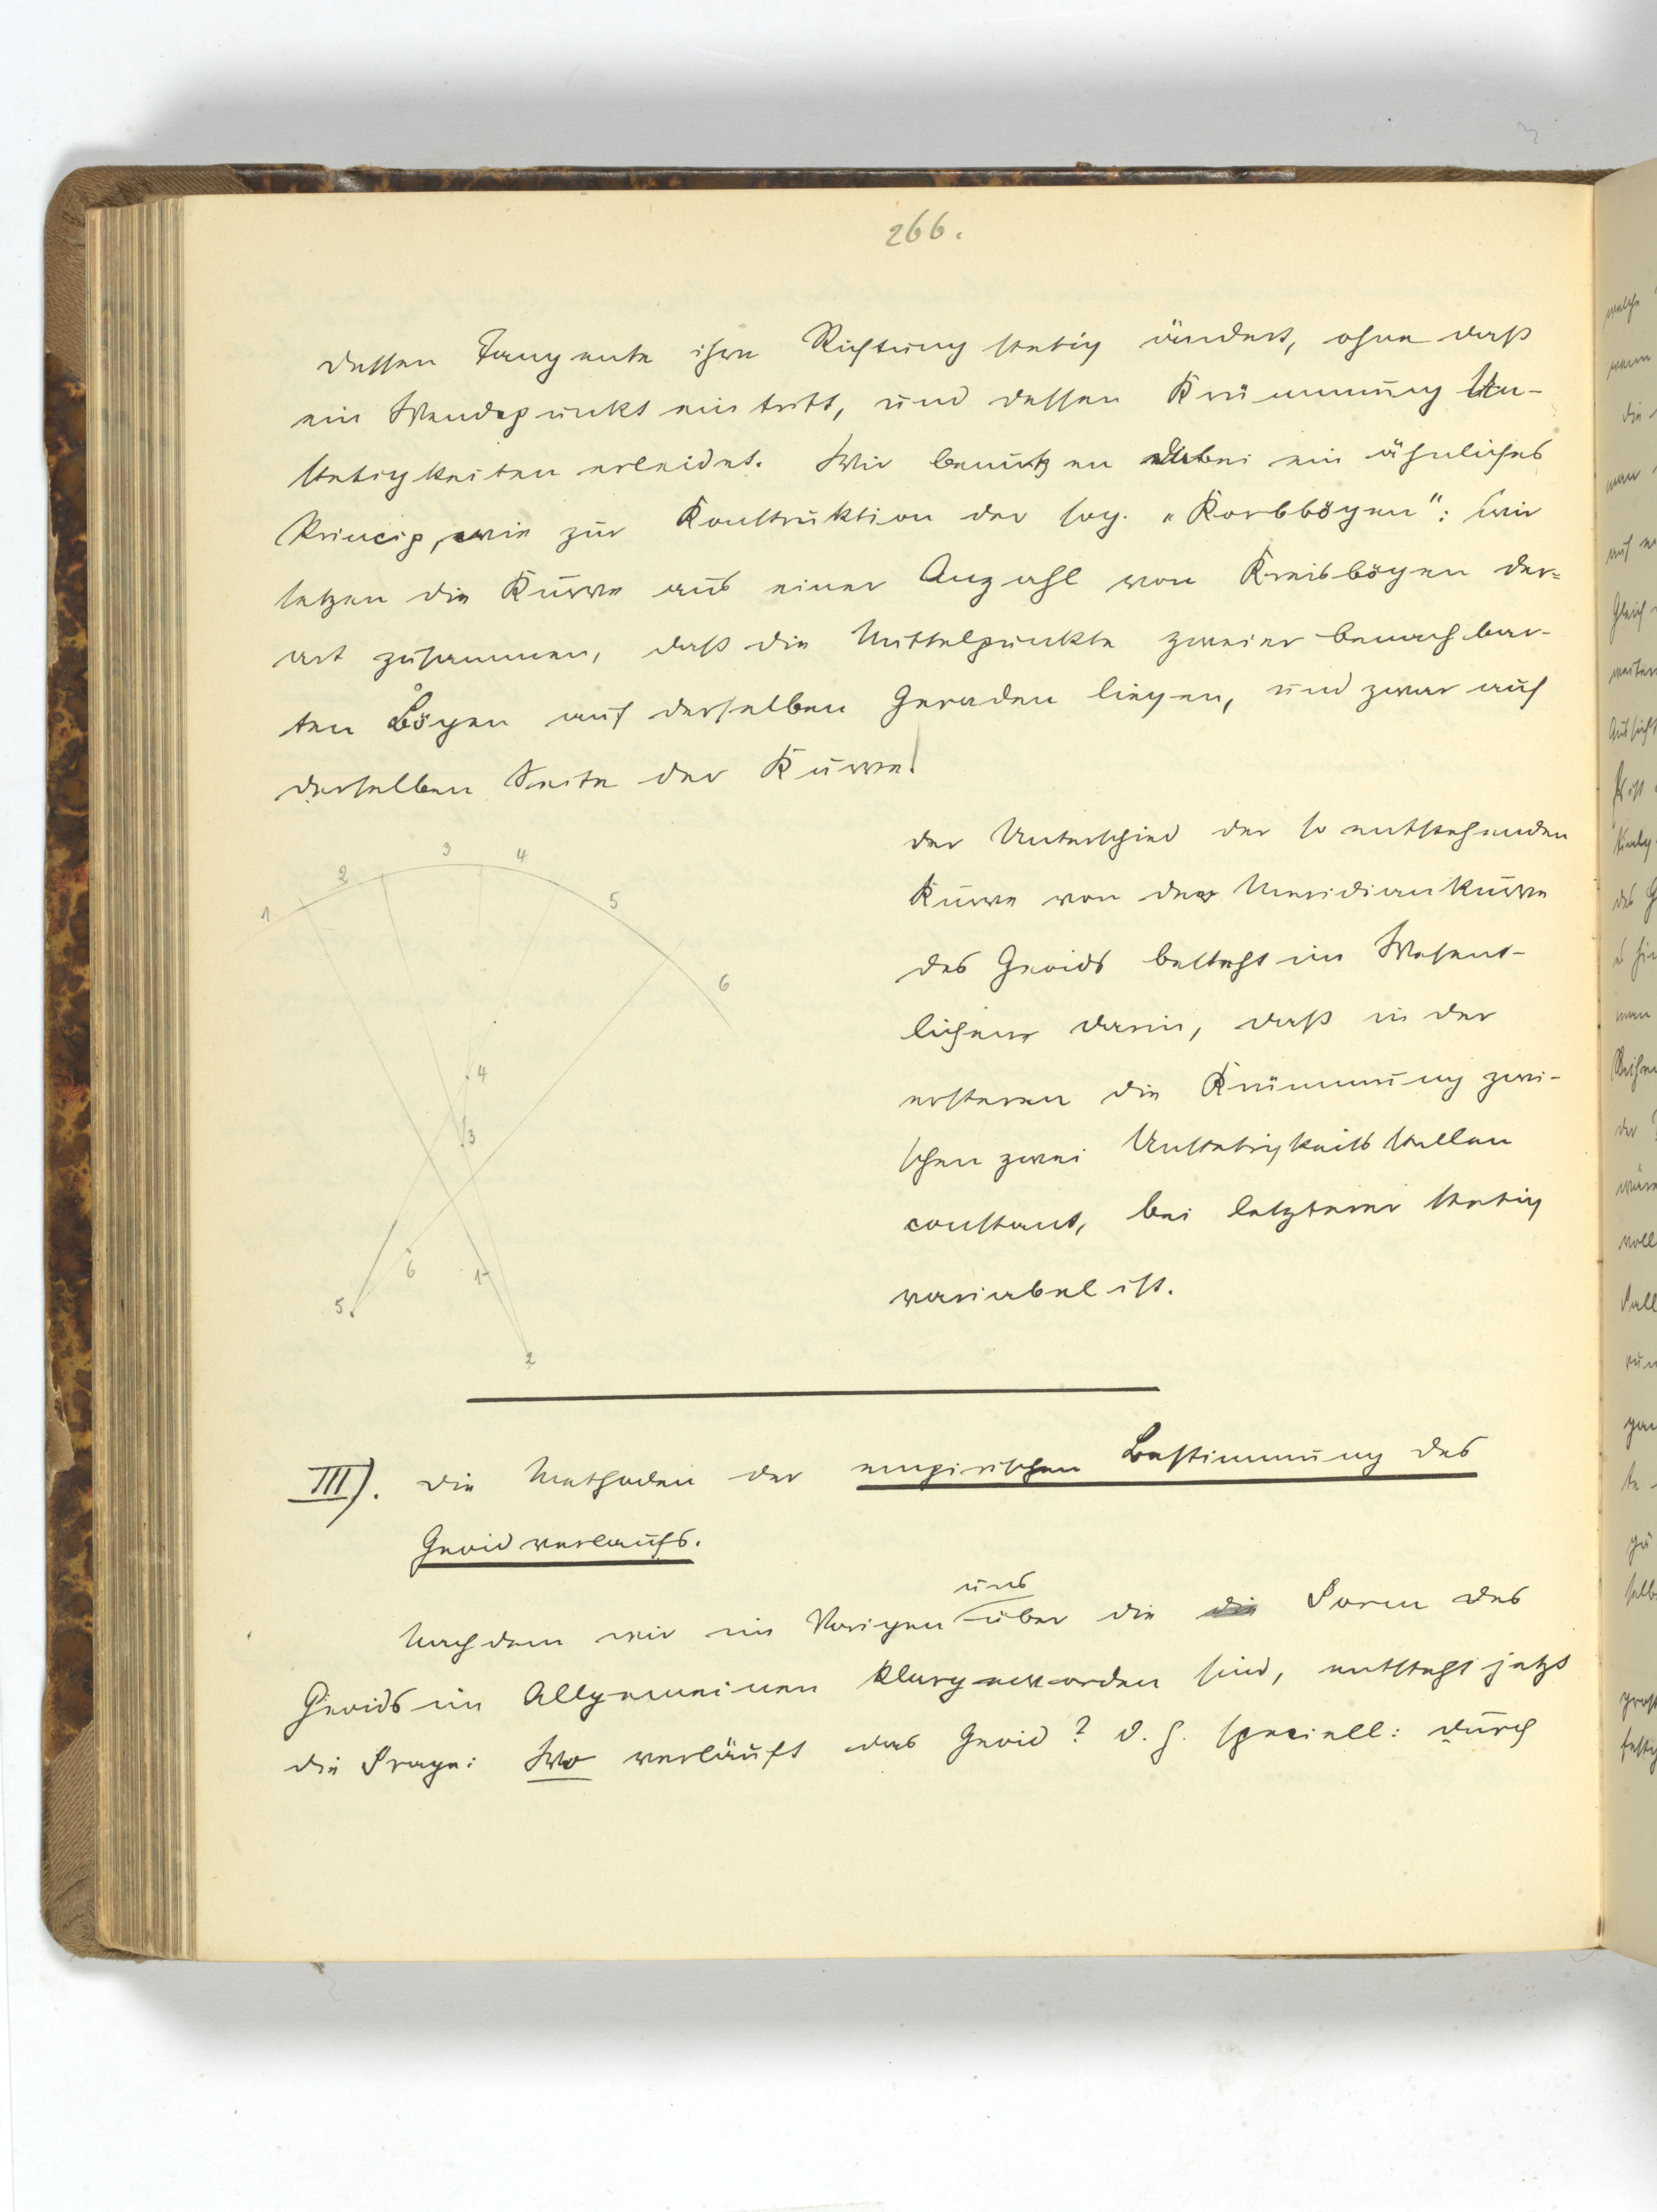 266.
dessen Tangente ihre Richtung stetig ändert, ohne daß
ein Wendepunkt eintritt, und dessen Krümmung Un-
stetigkeiten erleidet. Wir benutzen dabei ein ähnliches
Princip, wie zur Konstruktion der sog. "Korbbögen": wir
setzen die Kurve aus einer Anzahl von Kreisbögen der-
art zusammen, daß die Mittelpunkte zweier benachbar-
ten Bögen auf derselben Geraden liegen, und zwar auf
derselben Seite der Kurve.
der Unterschied der so entstehenden
Kurve von der Meridiankurve
des Geoids besteht im Wesent-
lichen darin, daß in der
ersteren die Krümmung zwi-
schen zwei Unstetigkeitsstellen
constant, bei letzterer stetig
variabel ist.
1
2
3
4
5
6
4
3
6
1
5.
2
III). Die Methoden der empirischen Bestimmung des
Geoidverlaufs.
Nachdem wir im Vorigen uns über die die Form des
Geoids im Allgemeinen klargeworden sind, entsteht jetzt
die Frage: Wo verläuft das Geoid? d. h. speciell: durch